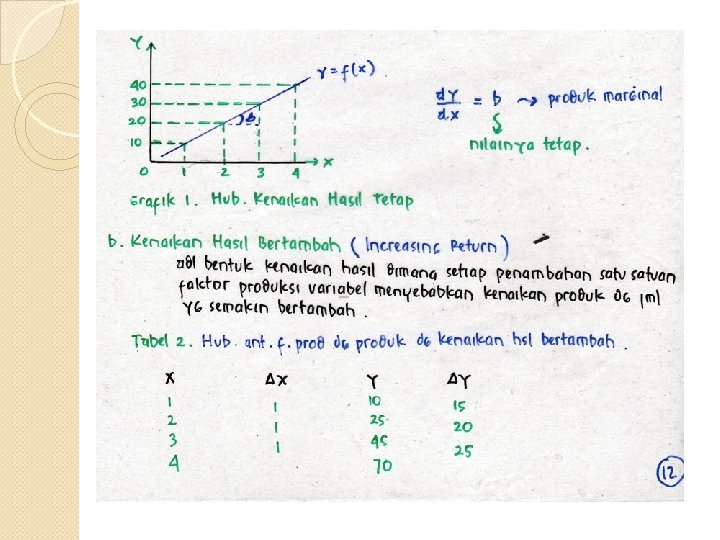 Y
Y = f(x)
40
30
20
10
b
0 1 2 3 4 X
dY/dX = b ⤳ produk marginal
nilainya tetap.
Grafik 1. Hub. Kenaikan Hasil Tetap
b. Kenaikan Hasil Bertambah (Increasing Return)
adl bentuk kenaikan hasil dimana setiap penambahan satu satuan
faktor produksi variabel menyebabkan kenaikan produk dg jml
yg semakin bertambah.
Tabel 2. Hub. ant. f. prod dg produk dg kenaikan hsl bertambah.
X ΔX Y ΔY
1 1 10 15
2 1 25 20
3 1 45 25
4 70
12